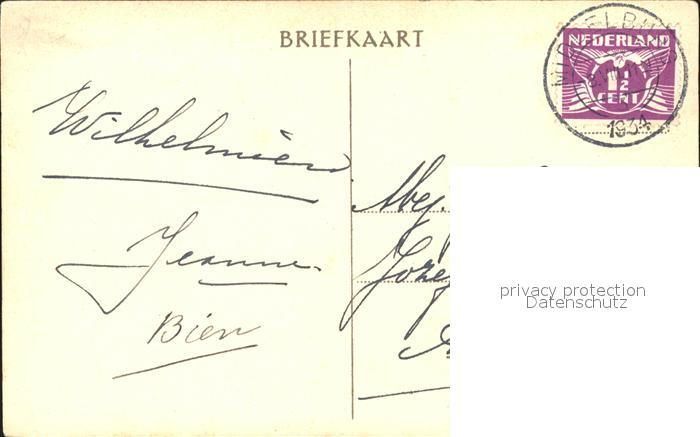 BRIEFKAART
NEDERLAND
1½
CENT
MIDDELBURG
1934
Wilhelmien
Jeanne.
Bien
Mej.
privacy protection
Datenschutz